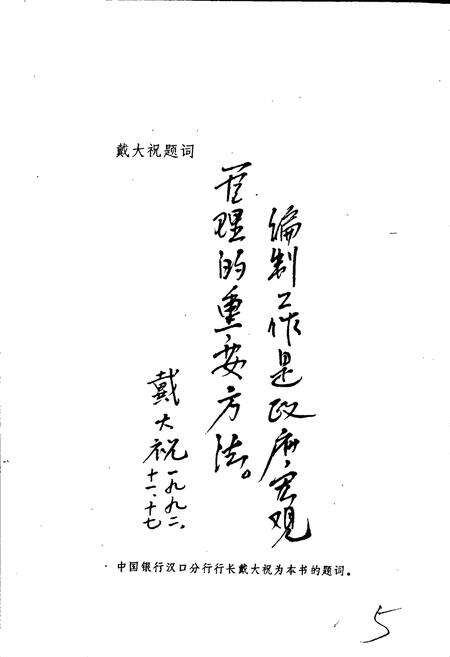 戴大祝题词
编制工作是政府宏观
管理的重要方法。
戴大祝 一九九二、
十一、十七
中国银行汉口分行行长戴大祝为本书的题词。
5